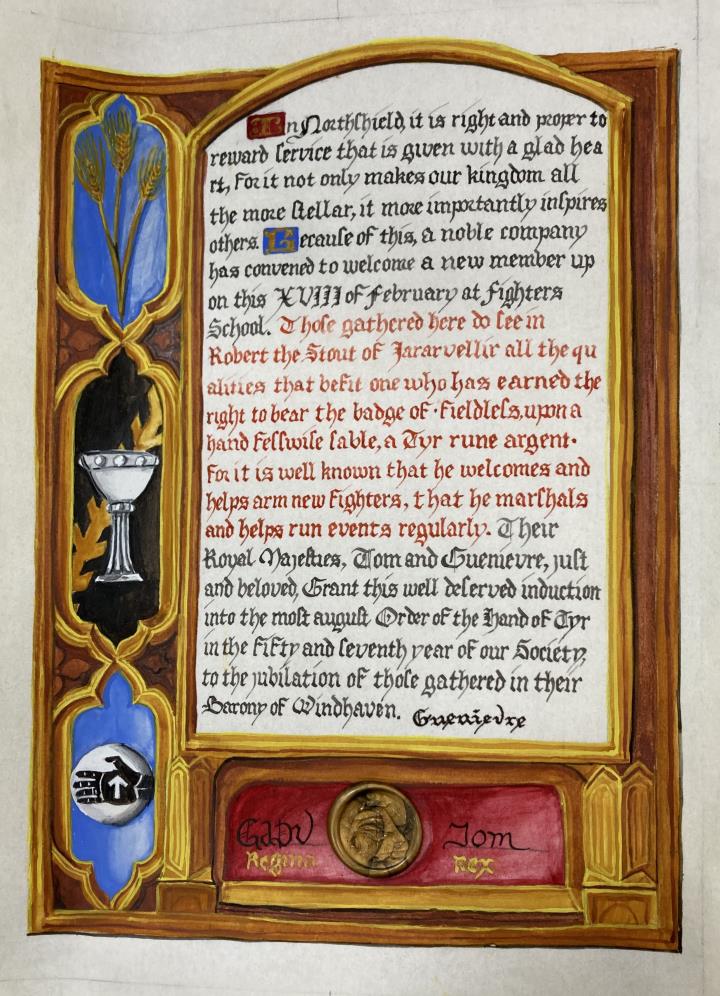 In Northshield, it is right and proper to
reward service that is given with a glad hea
rt, for it not only makes our kingdom all
the more stellar, it more importantly inspires
others. Because of this, a noble company
has convened to welcome a new member up
on this XVIII of February at Fighters
School. Those gathered here do see in
Robert the Stout of Jararvellir all the qu
alities that befit one who has earned the
right to bear the badge of · fieldless, upon a
hand fesswise sable, a Tyr rune argent·
For it is well known that he welcomes and
helps arm new fighters, that he marshals
and helps run events regularly. Their
Royal Majesties, Tom and Guenievre, just
and beloved, Grant this well deserved induction
into the most august Order of the Hand of Tyr
in the fifty and seventh year of our Society,
to the jubilation of those gathered in their
Barony of Windhaven. Guenievre
Tom
Regina Rex